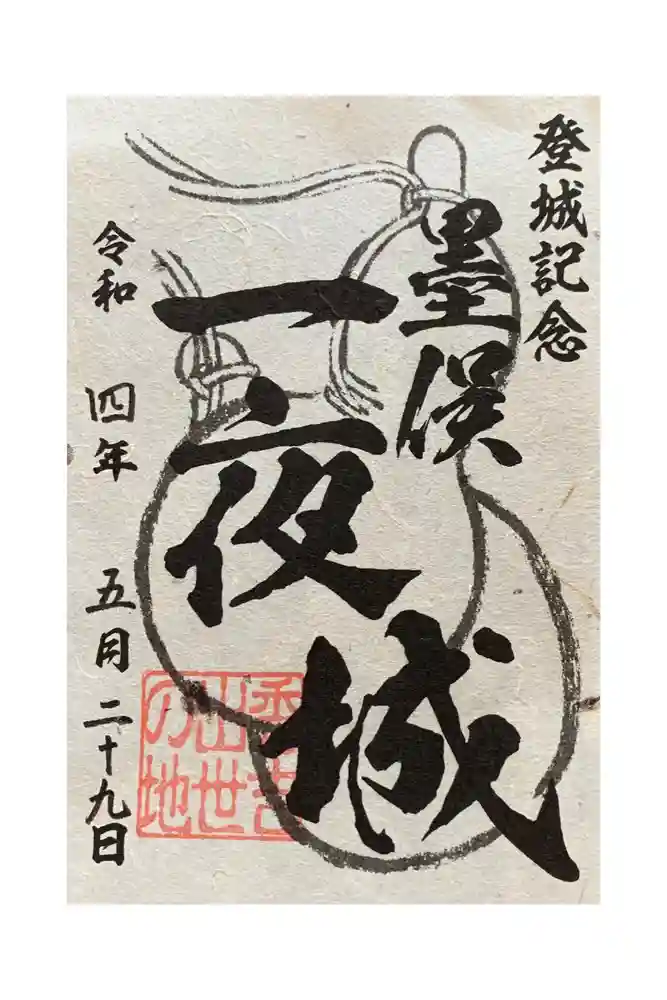 登城記念
墨俣
一夜城
秀吉
出世
の地
令和四年五月二十九日